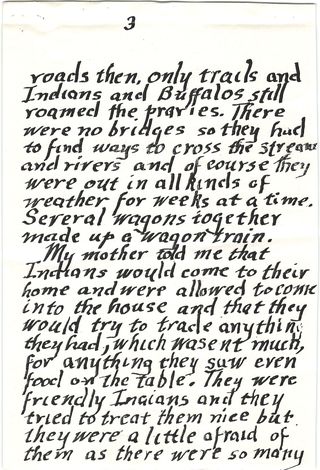 3
roads then, only trails and
Indians and Buffalos still
roamed the praries. There
were no bridges so they had
to find ways to cross the streams
and rivers and of course they
were out in all kinds of
weather for weeks at a time.
Several wagons together
made up a wagon train.
My mother told me that
Indians would come to their
home and were allowed to come
into the house and that they
would try to trade anything
they had, which wasent much,
for anything they saw even
food on the table. They were
friendly Indians and they
tried to treat them nice but
they were a little afraid of
them as there were so many